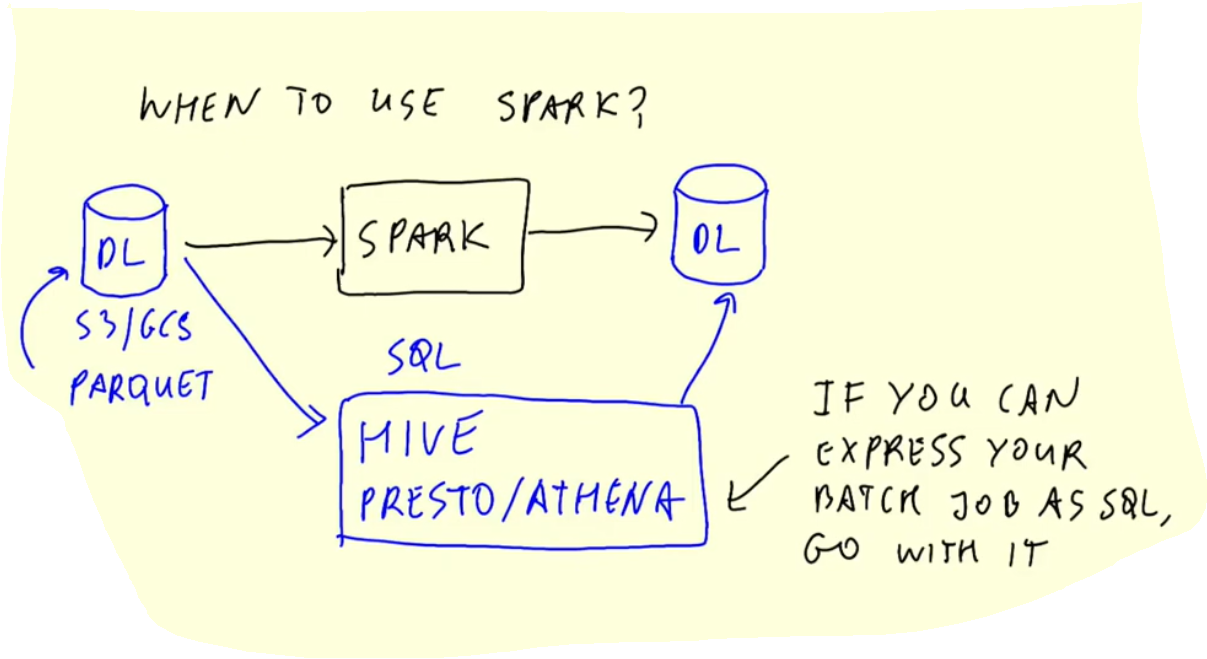 WHEN TO USE SPARK?
DL
SPARK
DL
S3/GCS
PARQUET
SQL
HIVE
PRESTO/ATHENA
IF YOU CAN
EXPRESS YOUR
BATCH JOB AS SQL,
GO WITH IT